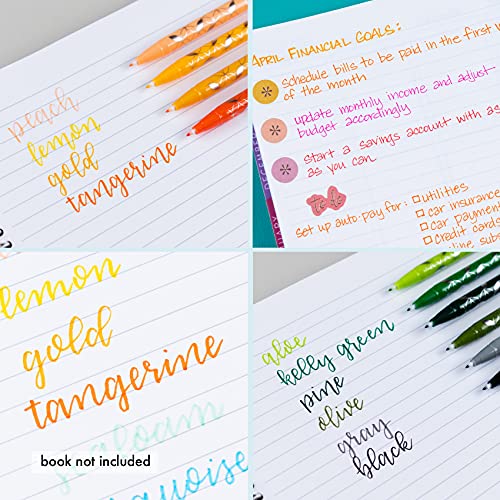 peach
lemon
gold
tangerine
APRIL FINANCIAL GOALS:
schedule bills to be paid in the first
of the month
update monthly income and adjust
budget accordingly
start a savings account with as
as you can.
set up auto-pay for:
utilities
car insurance
car payment
credit cards
lemon
gold
tangerine
seafoam
turquoise
book not included
aloe
kelly green
pine
olive
gray
black